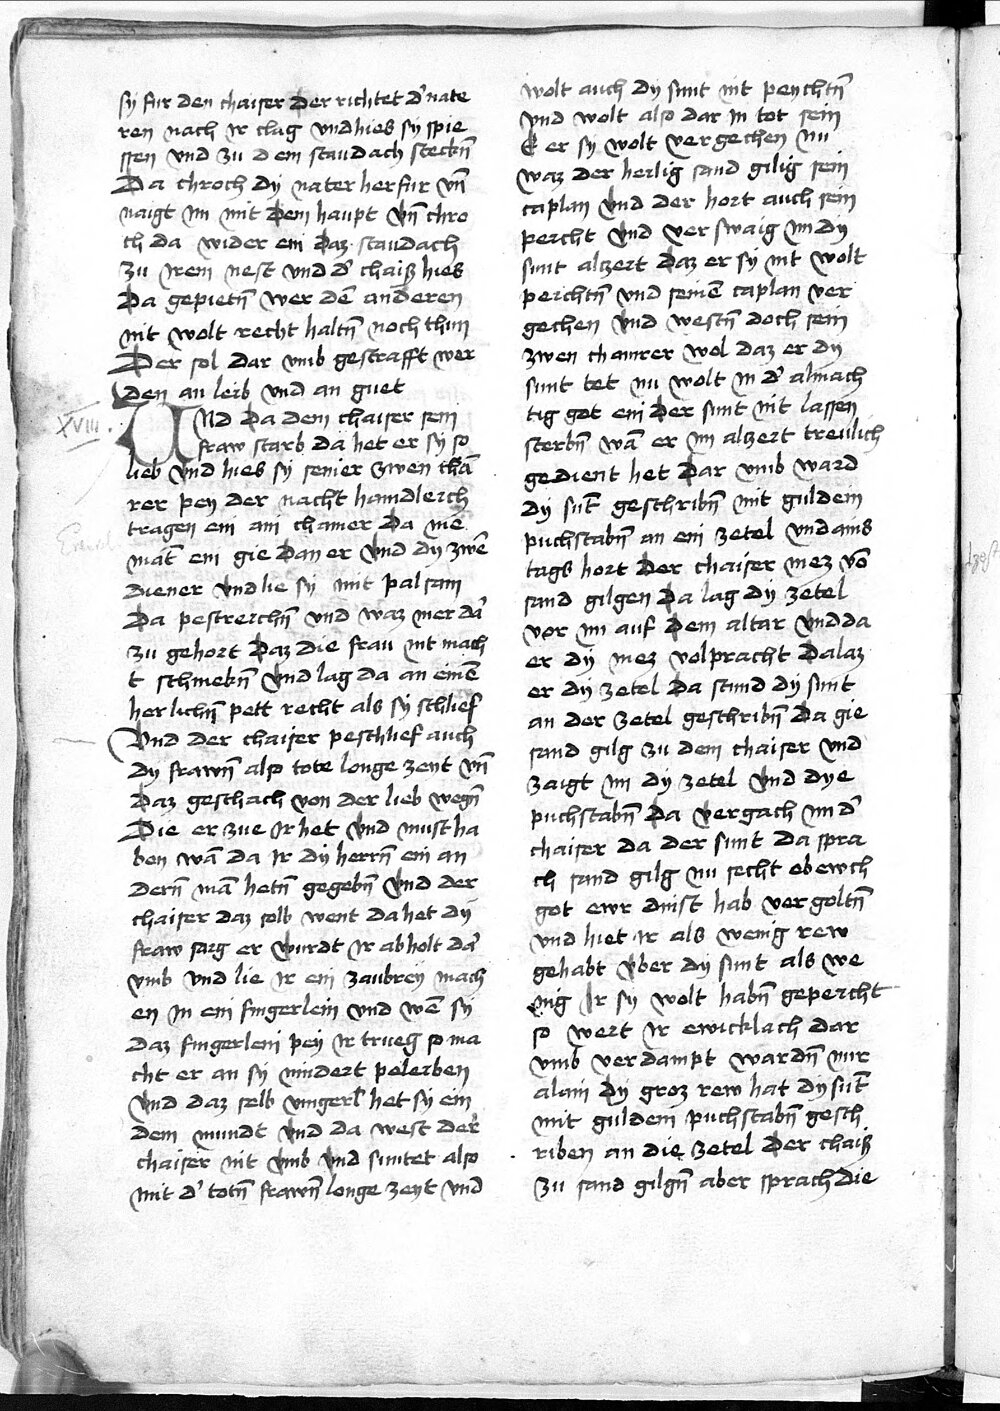 sÿ fur den chaiser der richtet d' nate
ren nach ir clag vnd hies sÿ spie
ssen vnd zu dem staudach steckn̄
Da chroch dÿ nater herfur vn̄
naigt im mit dem haupt vn̄ chro
ch da wider ein daz staudach
zu irem nest vnd d' chaiß hies
Da gepietn̄ wer dē anderen
nit wolt recht haltn̄ noch thun
Der sol dar vmb gestrafft wer
den an leib vnd an guet
XVIII.
VNd da dem chaiser sein
fraw starb da het er sÿ so
lieb vnd hies sÿ seinier zwen chā
rer peÿ der nacht haimdlerch
tragen ein ain chamer da nie
māt ein gie dan er vnd dÿ zwē
diener vnd lie sÿ mit palsam
Da pestreichn̄ vnd waz mer dā
zu gehort daz die frau nit mach
t schmekn̄ vnd lag da an einē
herlichn̄ pett recht als sÿ schlief
Vnd der chaiser peschlief auch
dÿ frawn̄ also tote longe zeyt vn̄
Daz geschach von der lieb wegn̄
Die er zue ir het vnd must ha
ben wā da ir dÿ herrn̄ ein an
dern̄ mā hetn̄ gegebn̄ vnd der
chaiser daz selb went da het dÿ
fraw sarg er wurdt ir abholt dā
vmb vnd lie ir ein zaubreÿ mach
en in ein fingerlein vnd wē sÿ
daz fingerlein peÿ ir trueg so ma
cht er an sÿ mindert peleiben
vnd daz selb vingerl het sÿ ein
dem mundt vnd da west der
chaiser nit vmb vnd suntet also
mit d' totn̄ frawn̄ longe zeyt vnd
wolt auch dÿ sunt nit peychtn̄
vnd wolt also dar in tot sein
E er sÿ wolt vergechen nu
waz der heilig sand gilig sein
caplan vnd der hort auch sein
peicht vnd verswaig im dÿ
sunt alzert daz er sÿ nit wolt
peichtn̄ vnd seinē caplan ver
gechen vnd westn̄ doch sein
zwen chamrer wol daz er dÿ
sunt tet nu wolt in d' almach
tig got ein der sunt nit lassen
sterbn̄ wā er im alzert treulich
gedient het dar vmb ward
dÿ sūt geschribn̄ mit guldein
puchstabn̄ an ein zetel vnd ains
tags hort der chaiser mez vō
sand gilgen da lag dÿ zetel
vor im auf dem altar vnd da
er dÿ mez volpracht da laz
er dÿ zetel da stund dÿ sunt
an der zetel geschribn̄ da gie
sand gilg zu dem chaiser vnd
zaigt im dÿ zetel vnd dye
puchstabn̄ da vergach im d'
chaiser da der sunt da spra
ch sand gilg nu secht ob ewch
got ewr dinst hab vergoltn̄
vnd hiet ir als wenig rew
gehabt vber dÿ sunt als we
nig ir sÿ wolt habn̄ gepeicht
so wert ir ewicklach dar
vmb verdampt wardn̄ nur
alain dÿ groz rew hat dÿ sūt
mit guldein puchstabn̄ gesch
riben an die zetel der chaiß
zu sand gilgn̄ aber sprach die